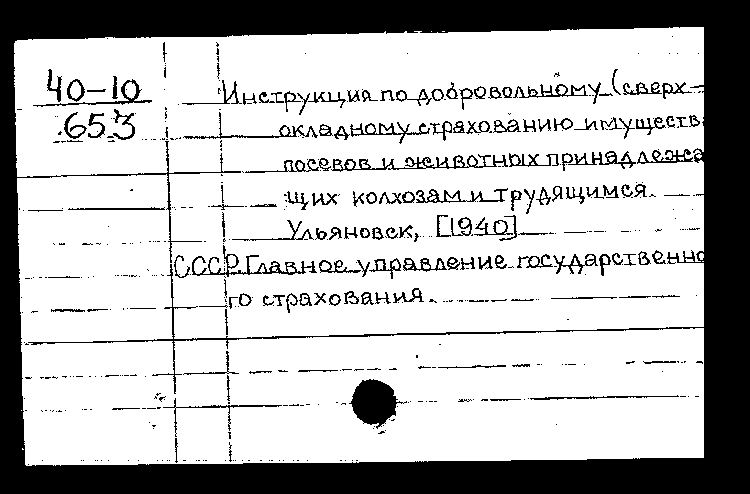 40-10
653
Инструкция по добровольному (сверх-
окладному страхованию имуществ
посевов и животных принадлежа
щих колхозам и трудящимся.
Ульяновск, [1940]
СССР. Главное управление государственно
го страхования.